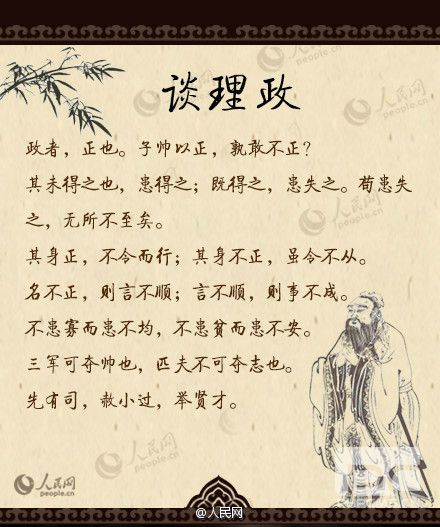 人民网
people.cn
谈理政
人民网
people.cn
政者，正也。子帅以正，孰敢不正？
其未得之也，患得之；既得之，患失之。苟患失
之，无所不至矣。
其身正，不令而行；其身不正，虽令不从。
名不正，则言不顺；言不顺，则事不成。
不患寡而患不均，不患贫而患不安。
三军可夺帅也，匹夫不可夺志也。
先有司，赦小过，举贤才。
人民网
people.cn
人民网
people.cn
@人民网